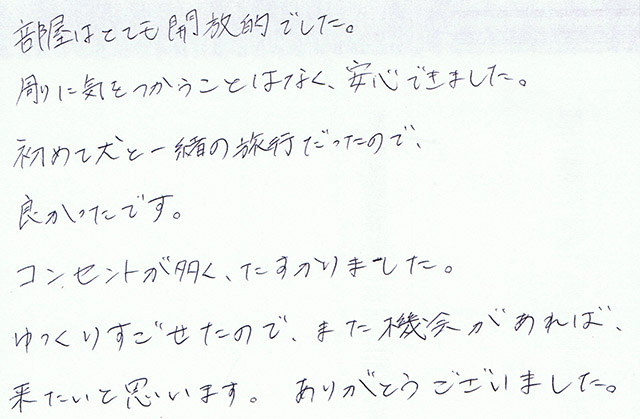 部屋はとても開放的でした。
剛に気をつかうことはなく、安心できました。
初めて犬と一緒の旅行だったので、
良かったです。
コンセントが多く、たすかりました。
ゆっくりすごせたので、また機会があれば、
来たいと思います。 ありがとうございました。